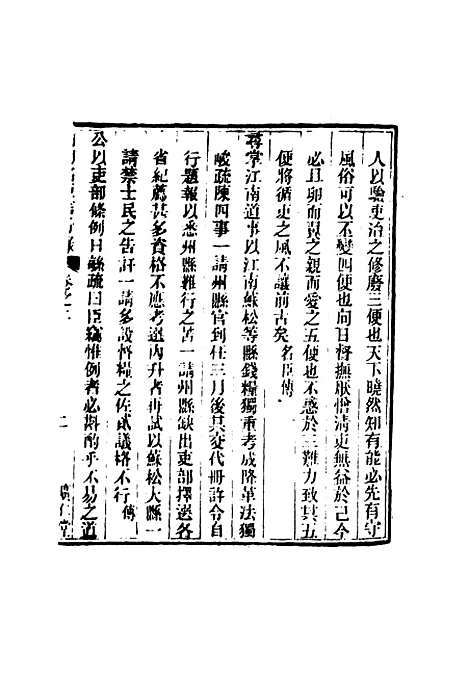 人以驗吏治之修廢三便也天下曉然知有能必先有守
風俗可以丕變四便也向日督撫厭憎清吏無益於己今
必且卵而翼之親而愛之五便也不惑於三難力致其五
便將循吏之風不讓前古矣名臣傳
尋掌江南道事以江南蘇松等縣錢糧獨重考成降革法獨
峻疏陳四事一請州縣官到任三月後其交代冊許令自
行題報以悉州縣難行之苦一請州縣缺出吏部擇選各
省紀薦甚多資格不應考選內升者再試以蘇松大縣一
請禁士民之告訐一請多設督糧之佐貳議格不行傳
公以吏部條例日繇疏曰臣竊惟例者必斟酌乎不易之道
卷之二
二